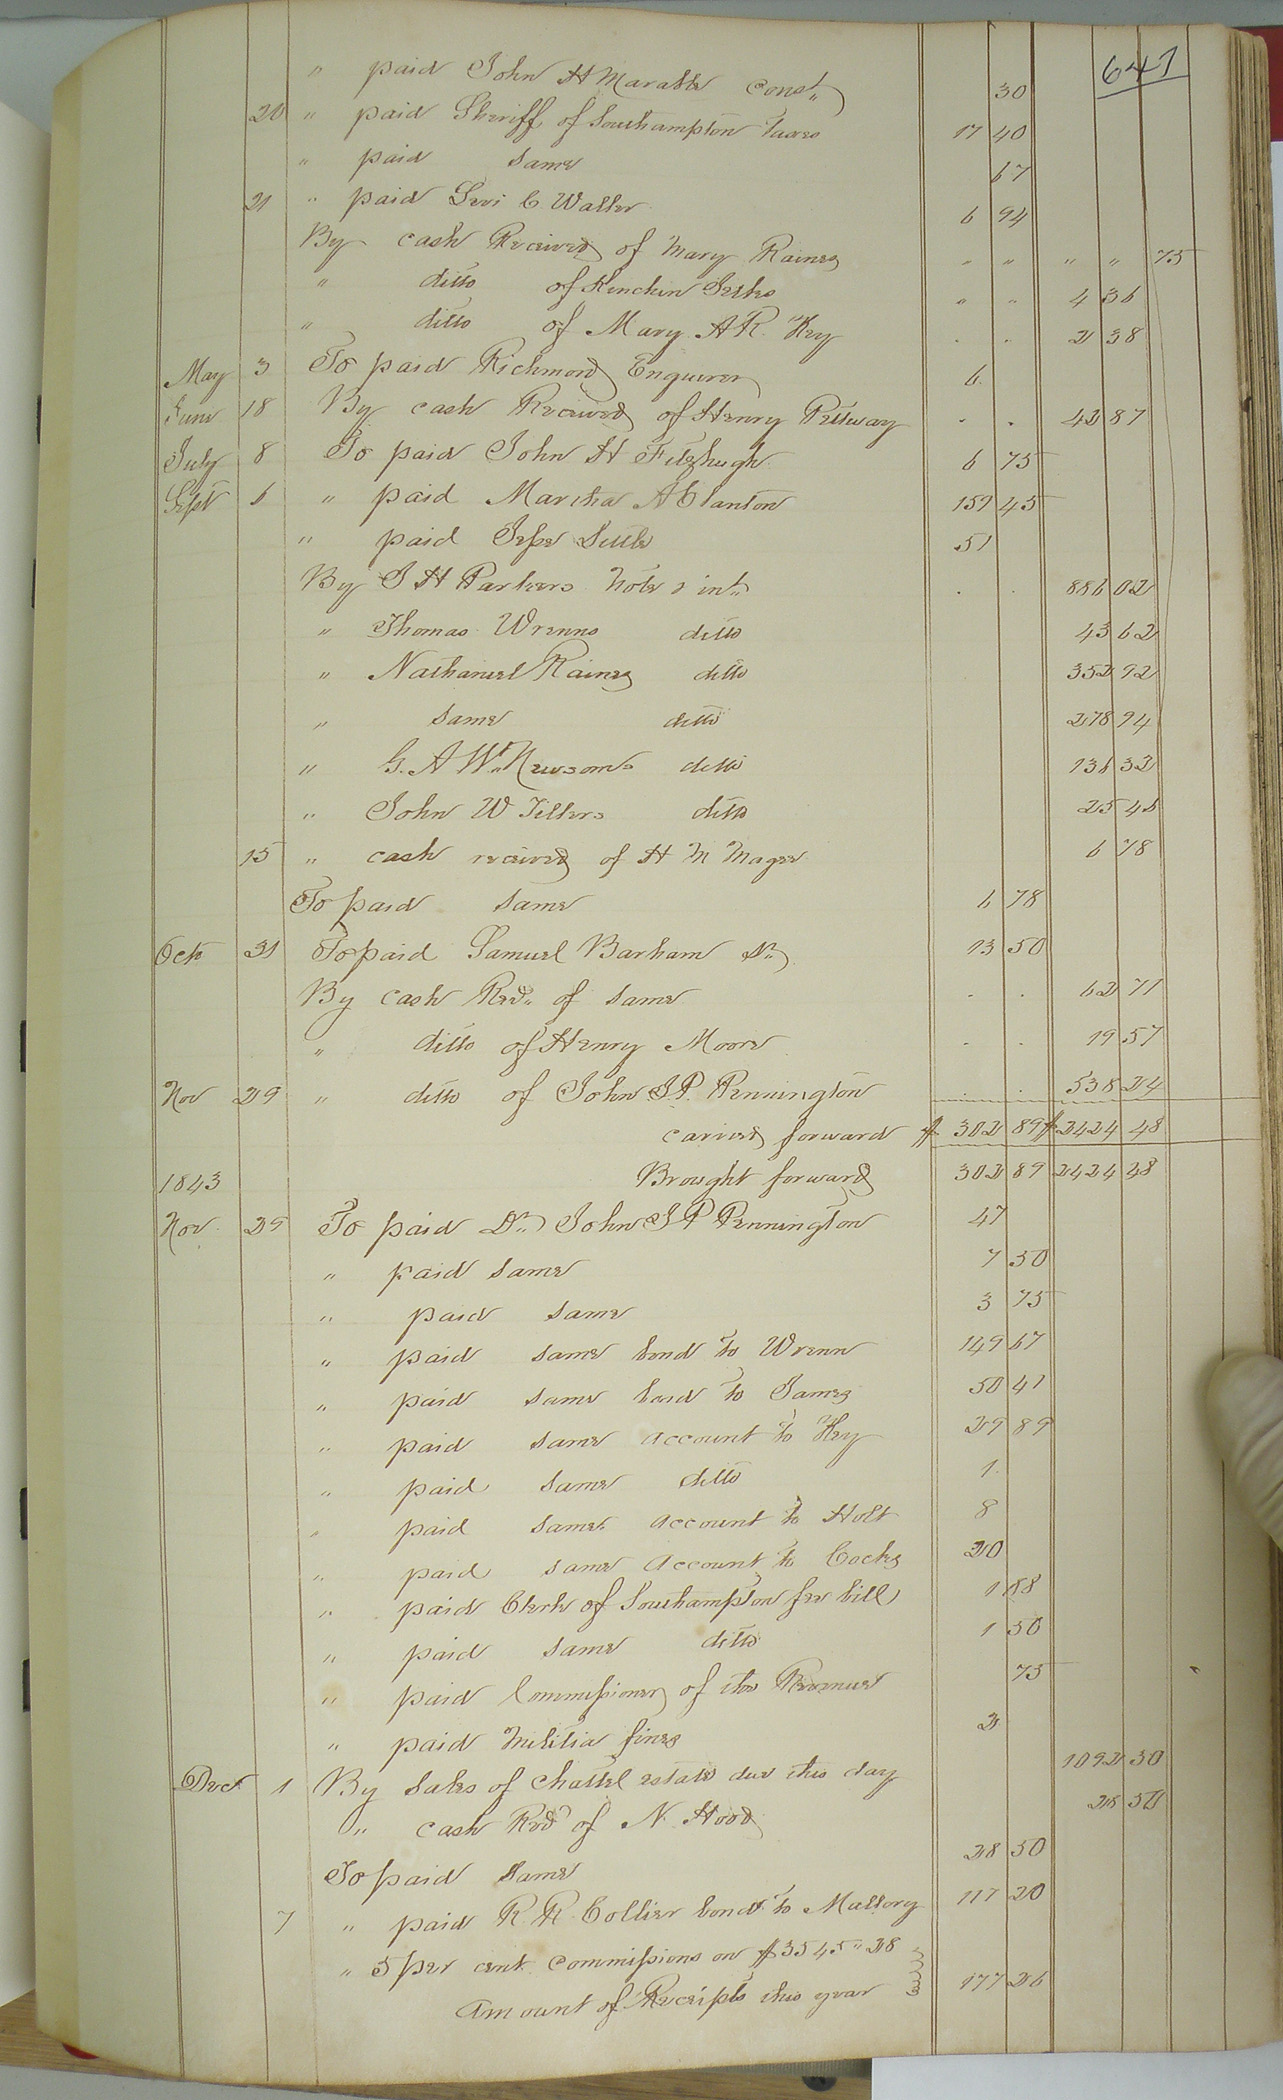 641
" paid John H Marable const" 30
20 " paid Sheriff of Southampton taxes 17 40
" paid same 67
21 " paid Levi C Waller 6 94
By cash Received of Mary Raines " " " " 75
" ditto of Kinchen " " 4 36
" ditto of Mary A R. Key . . 2 38
May 3 To paid Richmond Enquirer 6.
June 18 By cash Received of Henry Pettway . . 42 87
July 8 To paid John H Fitzhugh 6 75
Sept 6 " paid Martha A Clanton 159 45
" paid Jesse Little 51
By J H Parkers note & int" . . 886 02
" Thomas Wrenns ditto 43 62
" Nathaniel Raines ditto 352 92
" same ditto 278 94
" G. A W. Newsoms ditto 136 32
" John W Tellers ditto 25 46
15 " cash received of H M Magee 6 78
To paid same 6 78
Oct 31 To paid Samuel Barham Dr 13 50
By cash Recd" of same . . 62 71
" ditto of Henry Moore . . 19 57
Nov 29 " ditto of John J P. Pennington . . 538 24
carried forward $ 302 89 $ 2424 48
1843 Brought forward 302 89 2424 48
Nov. 29 To paid Dr" John J P Pennington 47
" paid same 7 50
" paid same 3 75
" paid same bond to Wrenn 149 67
" paid same bond to James 50 41
" paid same account to Key 29 89
" paid same ditto 1.
" paid same account to Holt 8
" paid same account to Cocks 20
" paid Clerk of Southampton fee bill 1 88
" paid same ditto 1 50
" paid Commissioner of the Revenue 75
" paid Militia fines 2
Dec 1 By Sales of chattel estate due this day 1092 30
" cash Recd of N. Hood 28 50
To paid same 28 50
7 " paid R. R. Collier bond to Mallory 117 20
" 5 per cent commissions on $3545"28
amount of Receipts this year 177 26